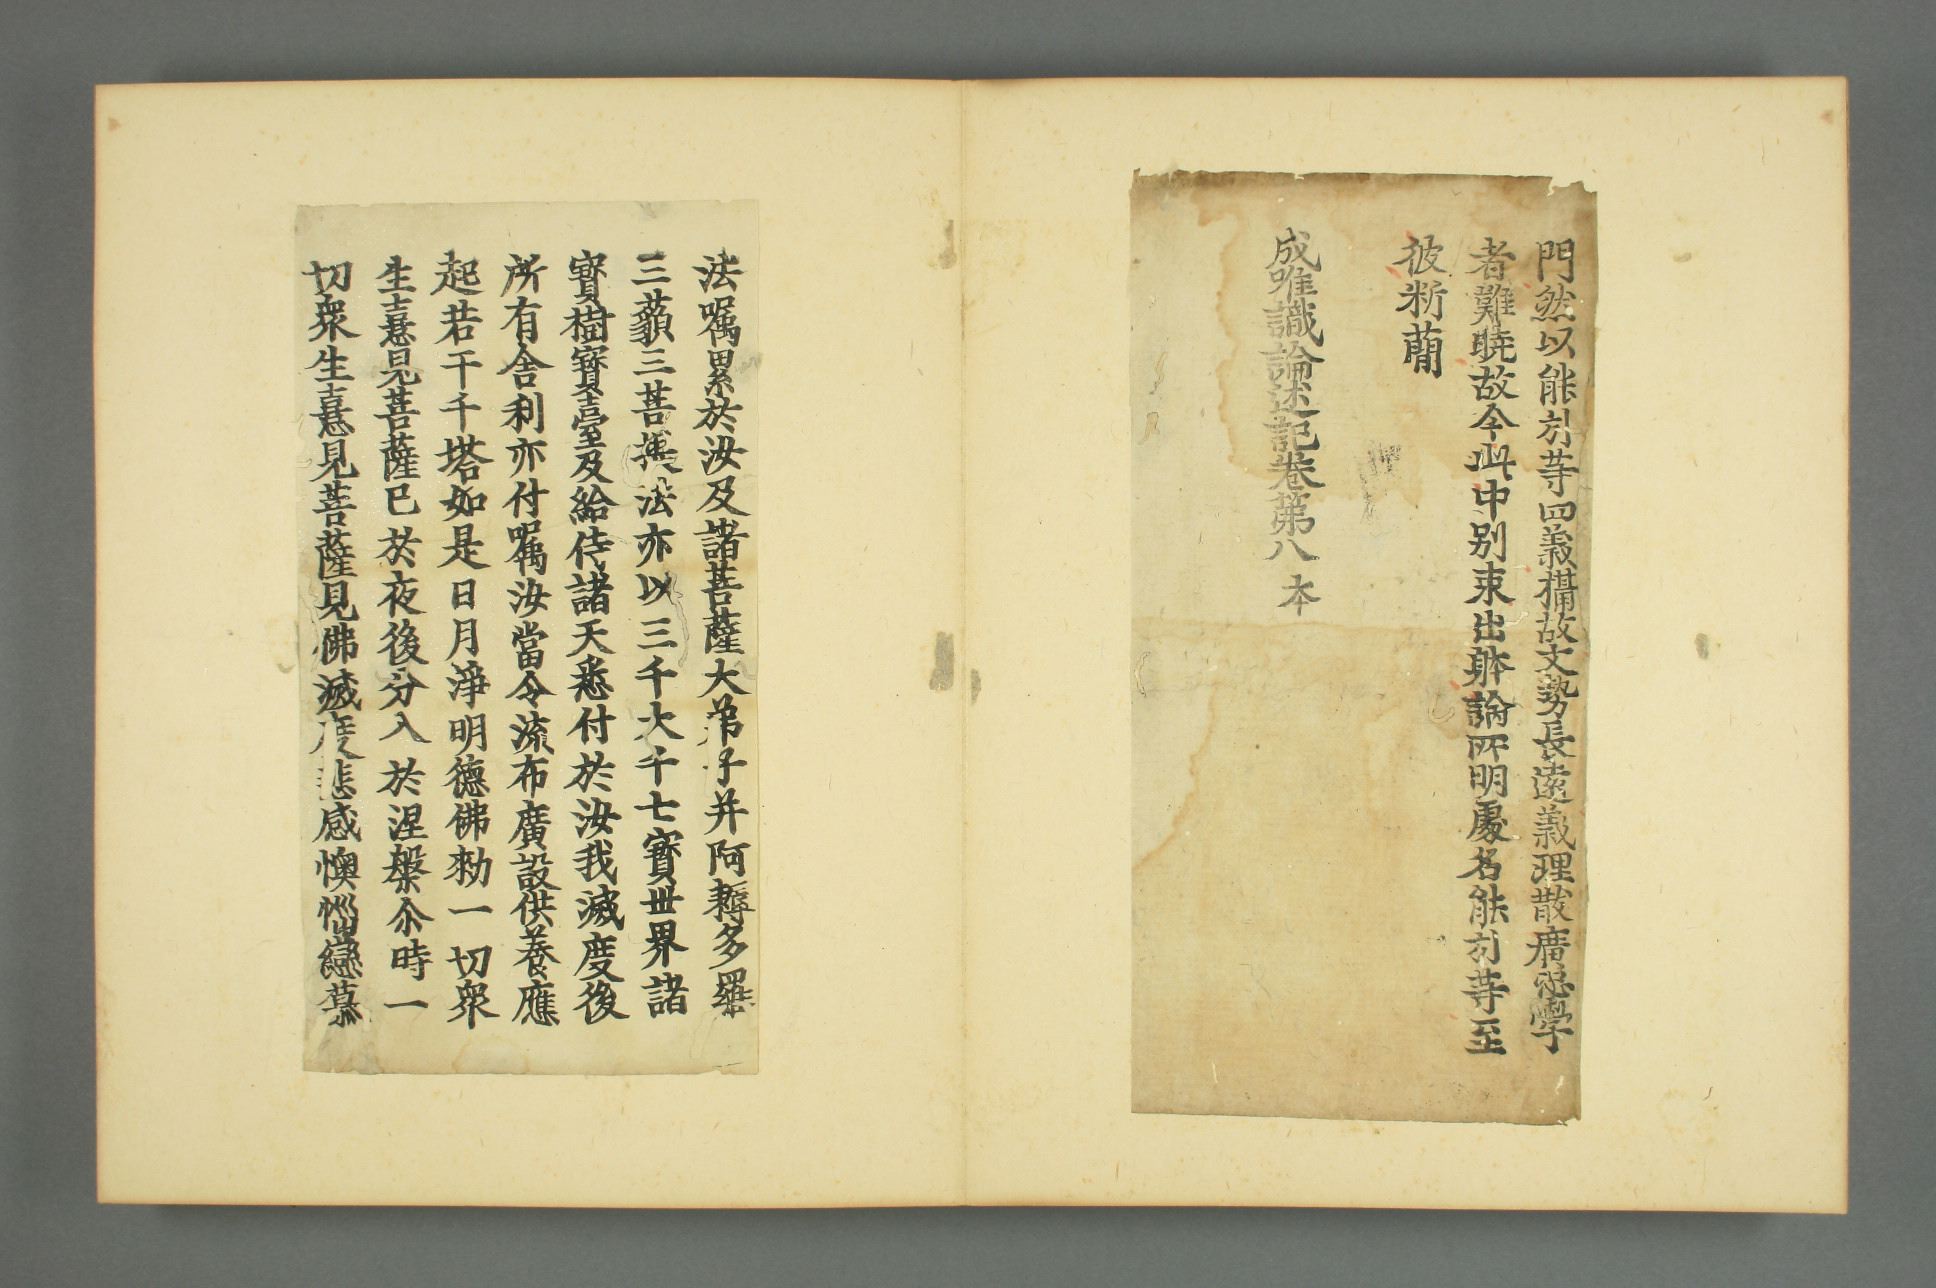 門然以能別等四義搆故文勢長遠義理散廣恐學
者難曉故今此中別束出躰論所明處名能別等至
彼断蕳
成唯識論述記卷第八 本
法囑累於汝及諸菩薩大弟子并阿耨多羅
三藐三菩提法亦以三千大千七寳世界諸
寳樹寳臺及給侍諸天悉付於汝我滅度後
所有舎利亦付囑汝當令流布廣設供養應
起若干千塔如是日月淨明德佛勑一切衆
生憙見菩薩已於夜後分入於涅槃尒時一
切衆生憙見菩薩見佛滅度悲感懊惱戀慕